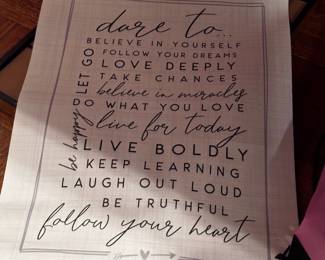 dare to...
BELIEVE IN YOURSELF
FOLLOW YOUR DREAMS
LET GO
LOVE DEEPLY
TAKE CHANCES
believe in miracles
DO WHAT YOU LOVE
be happy
live for today
LIVE BOLDLY
KEEP LEARNING
LAUGH OUT LOUD
BE TRUTHFUL
follow your heart